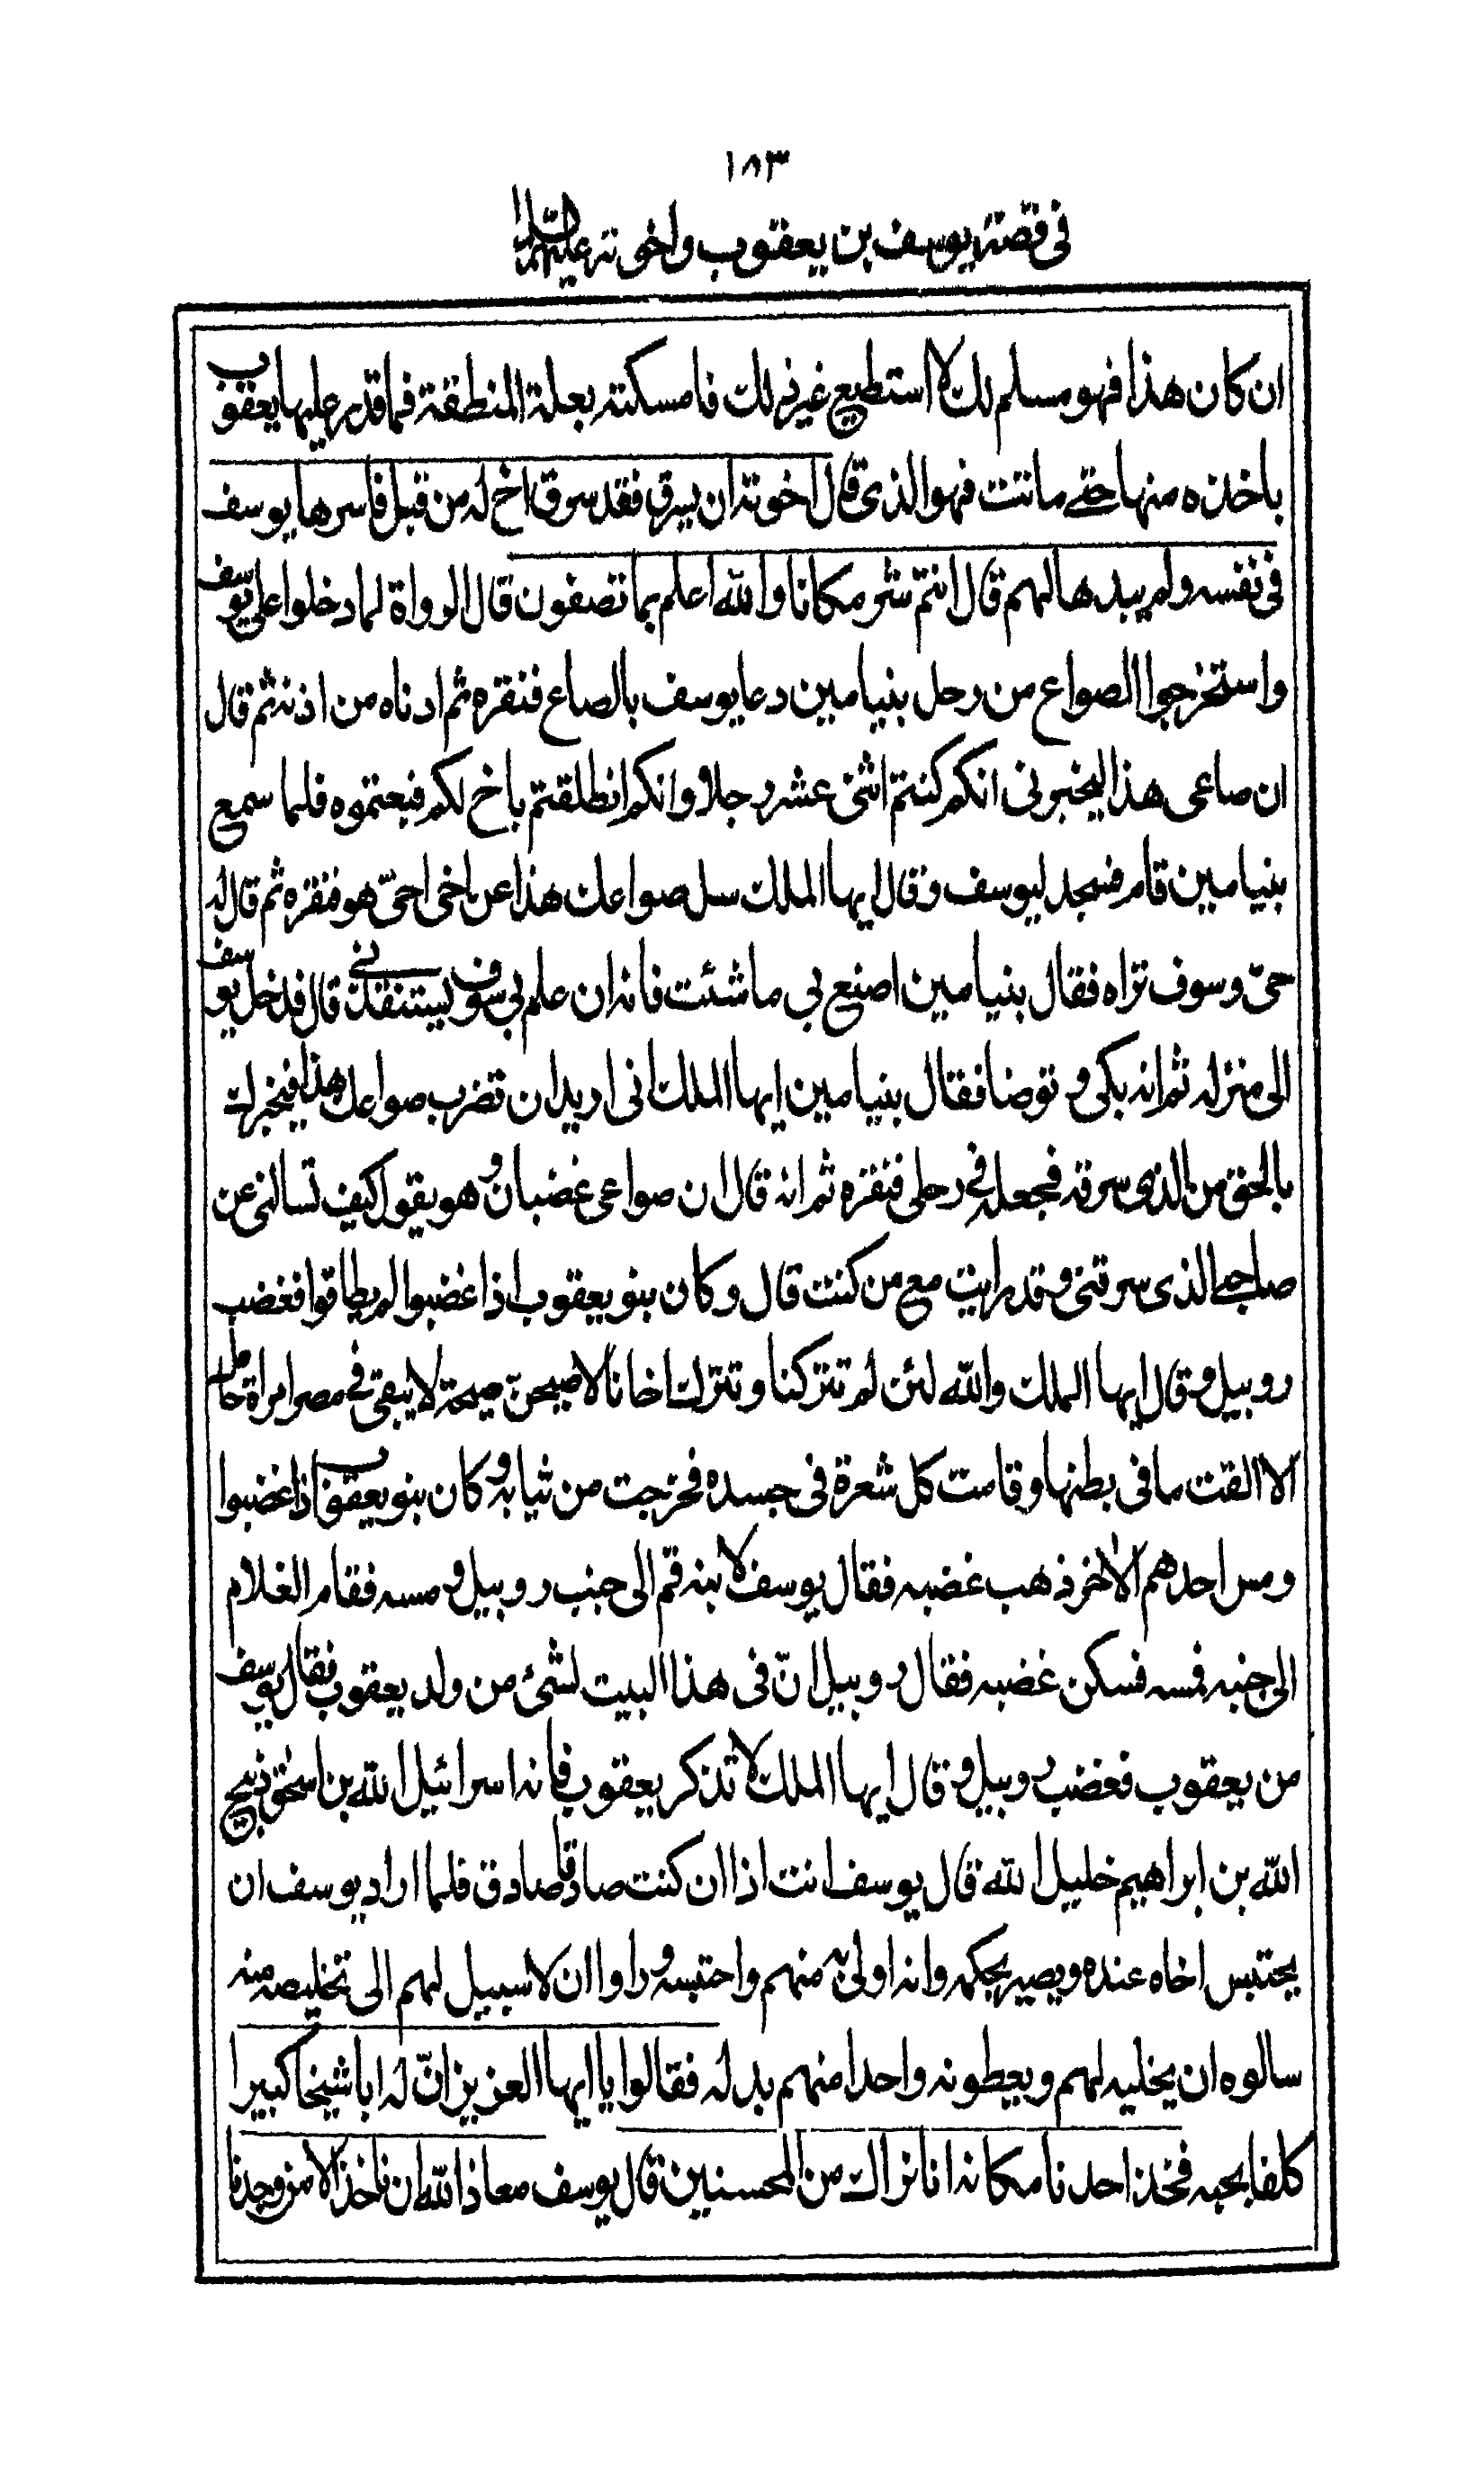 ١٨٣
فى قصة يوسف بن يعقوب واخوته عليهم السلام
ان كان هذا فهو مسلم لك لا استطيع غير ذلك فامسكته بعلة المنطقة فما قدر عليها يعقوب
باخذه منها حتى ماتت فهو الذى قال اخوته ان يسرق فقد سرق اخ له من قبل فاسرها يوسف
فى نفسه ولم يبدها لهم قال انتم شر مكانا والله اعلم بما تصفون قال الرواة لما دخلوا على يوسف
واستخرجوا الصواع من رحل بنيامين دعا يوسف بالصاع فنقره ثم ادناه من اذنه ثم قال
ان صاعى هذا ليخبرنى انكم كنتم اثنى عشر رجلا وانكم انطلقتم باخ لكم فبعتموه فلما سمع
بنيامين قام فسجد ليوسف وقال ايها الملك سل صواعك هذا عن اخى احىّ هو فنقره ثم قال له
حىّ وسوف تراه فقال بنيامين اصنع بى ما شئت فانه ان علم بى سوف يستنقذنى قال فدخل يوسف
الى منزله ثم انه بكى وتوضا فقال بنيامين ايها الملك انى اريد ان تضرب صواعك هذا فيخبرك
بالحق من الذى سرقه فجعله فى رحلى فنقره ثم انه قال ان صواعى غضبان وهو يقول كيف تسالنى عن
صاحبى الذى سرقنى وقد رايت مع من كنت قال وكان بنو يعقوب اذا غضبوا لم يطاقوا فغضب
روبيل وقال ايها الملك والله لئن لم تتركنا وتترك اخانا لاصيحنّ صيحة لا يبقى فى مصر امراة حامل
الا القت ما فى بطنها وقامت كل شعرة فى جسده فخرجت من ثيابه وكان بنو يعقوب اذا غضبوا
ومس احدهم الاخر ذهب غضبه فقال يوسف لابنه قم الى جنب روبيل ومسه فقام الغلام
الى جنبه فمسه فسكن غضبه فقال روبيل انّ فى هذا البيت لشئ من ولد يعقوب فقال يوسف
من يعقوب فغضب روبيل وقال ايها الملك لا تذكر يعقوب فانه اسرائيل الله بن اسحق ذبيح
الله بن ابراهيم خليل الله قال يوسف انت اذا ان كنت صادقا صادق فلما اراد يوسف ان
يحتبس اخاه عنده ويصير بحكمه وانه اولى به منهم واحتبسه وراوا ان لا سبيل لهم الى تخليصه منه
سالوه ان يخليه لهم ويعطونه واحدا منهم بدله فقالوا يا ايها العزيز انّ له ابا شيخا كبيرا
كلفا بحبه فخذ احدنا مكانه انا نراك من المحسنين قال يوسف معاذ الله ان ناخذ الا من وجدنا